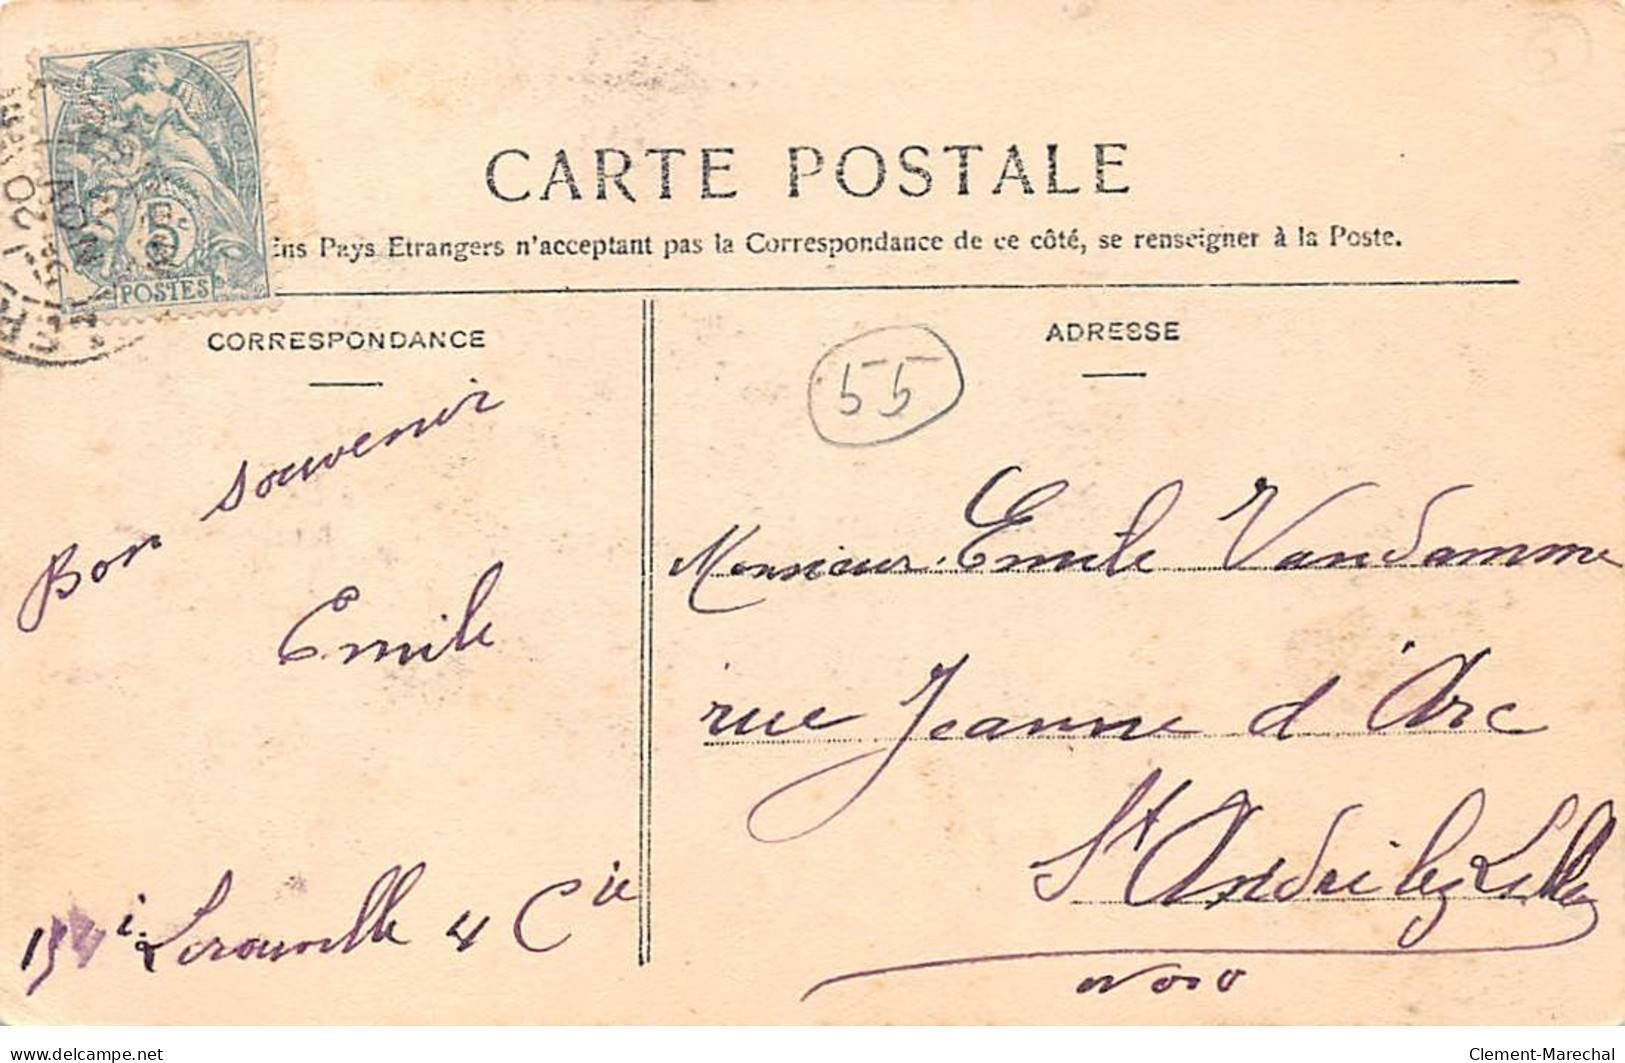 CARTE POSTALE
ens Pays Etrangers n'acceptant pas la Correspondance de ce côté, se renseigner à la Poste.
5c
POSTES
CORRESPONDANCE
Bon souvenir
Emile
Lerouville 4 Cie
ADRESSE
55
Monsieur Emile Vandamme
rue Jeanne d'Arc
St André lez Lille
Nord
www.delcampe.net
Clement-Marechal